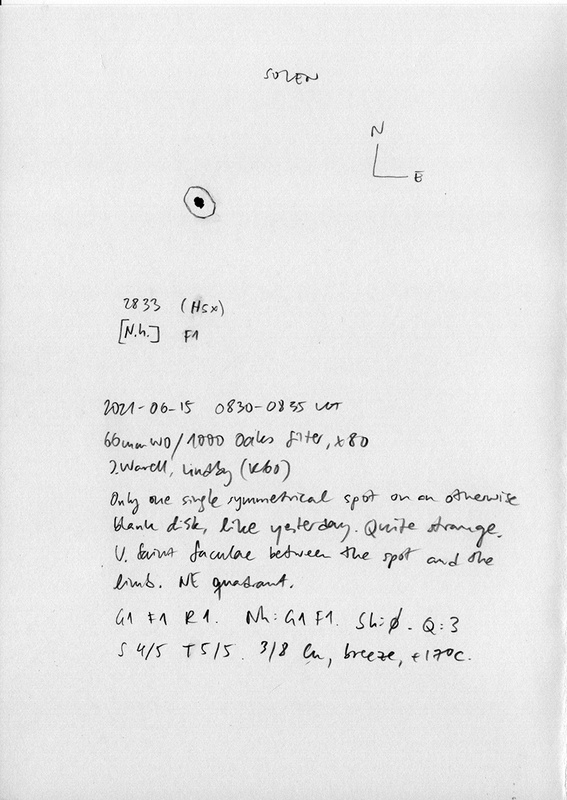 SOLEN
N
E
2833 (Hsx)
[N.h.] F1
2021-06-15 0830-0835 UT
66mm WO/1000 Oaks filter, x80
J. Warell, Lindby (K60)
Only one single symmetrical spot on an otherwise
blank disk, like yesterday. Quite strange.
V. faint faculae between the spot and the
limb. NE quadrant.
G1 F1 R1. Nh: G1 F1. Sh: ø. Q: 3
S 4/5 T 5/5. 3/8 Cu, breeze, +17°C.